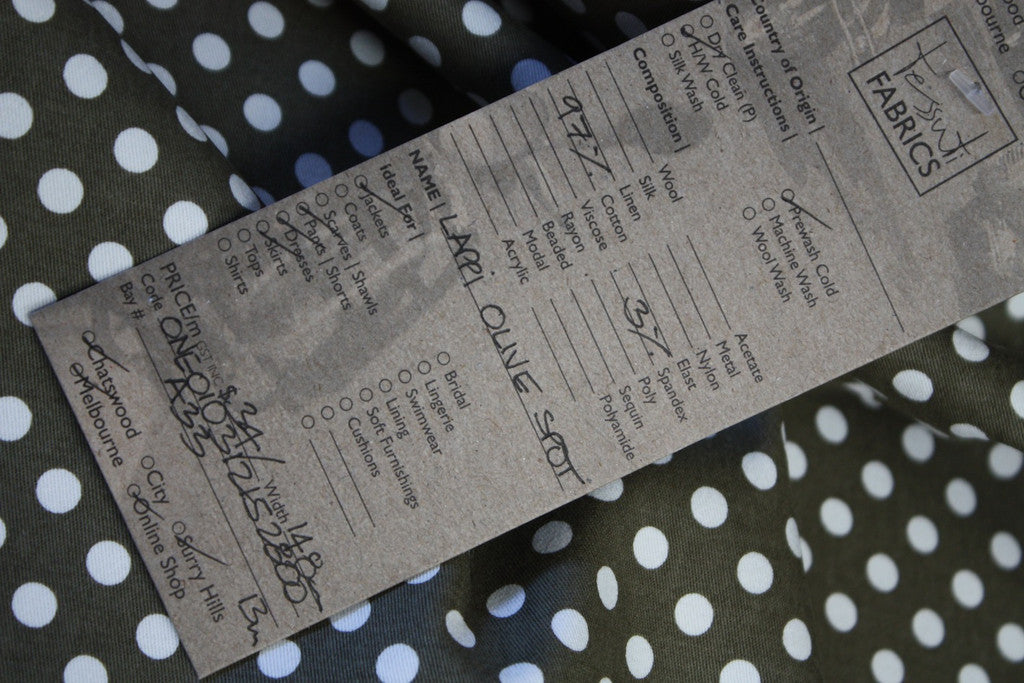 ood
bourne
Tessuti
FABRICS
Country of Origin |
Care Instructions |
Dry Clean (P)
H/W Cold
Silk Wash
Prewash Cold
Machine Wash
Wool Wash
Composition |
Wool
Silk
Linen
97% Cotton
Viscose
Rayon
Beaded
Modal
Acrylic
Acetate
Metal
Nylon
Elast
3% Spandex
Poly
Sequin
Polyamide
NAME | LAPPI OLIVE SPOT
Ideal For |
Jackets
Coats
Scarves | Shawls
Pants | Shorts
Dresses
Skirts
Tops
Shirts
Bridal
Lingerie
Swimwear
Lining
Soft Furnishings
Cushions
PRICE/m $34/ Width 148
Code
Bay # A33 13m
Chatswood
Melbourne
City
Online Shop
Surry Hills